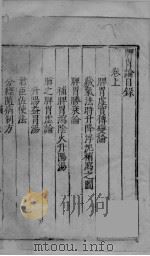 脾胃論目錄
卷上
脾胃虛實傳變論
藏氣法時升降浮沉補瀉之圖
脾胃勝衰論
補脾胃瀉陰火升陽湯
肺之脾胃虛論
升陽益胃湯
君臣佐使法
分經隨病制方